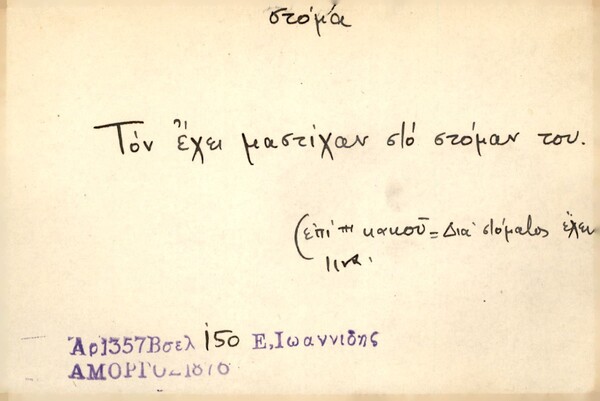 στόμα
Τόν ἔχει μαστίχαν στό στόμαν του.
(ἐπί κακοῦ = Διά στόματος ἔχει
τινα.
Ἀρ1357Βσελ 150 Ε,Ιωαννιδης
ΑΜΟΡΓΟΣ1876